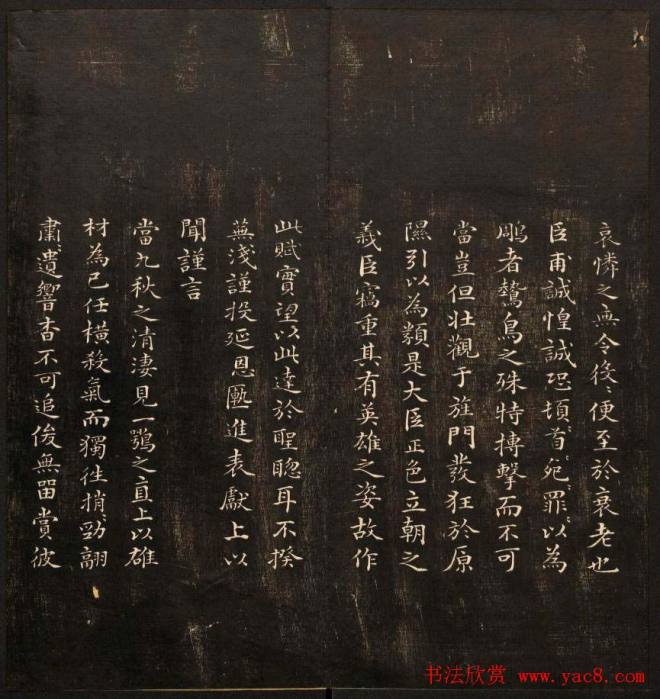 哀憐之無令役〻便至於衰老也
臣甫誠惶誠恐頓〻首〻死〻罪〻以為
鵰者鷙鳥之殊特搏擊而不可
當豈但壯觀于旌門發狂於原
隰引以為類是大臣正色立朝之
義臣竊重其有英雄之姿故作
此賦實望以此達於聖聰耳不揆
蕪淺謹投延恩匭進表獻上以
聞謹言
當九秋之清淒見一鶚之直上以雄
材為己任橫殺氣而獨往捎勁翮
肅〻遺響杳不可追俊無留賞彼
书法欣赏 www.yac8.com